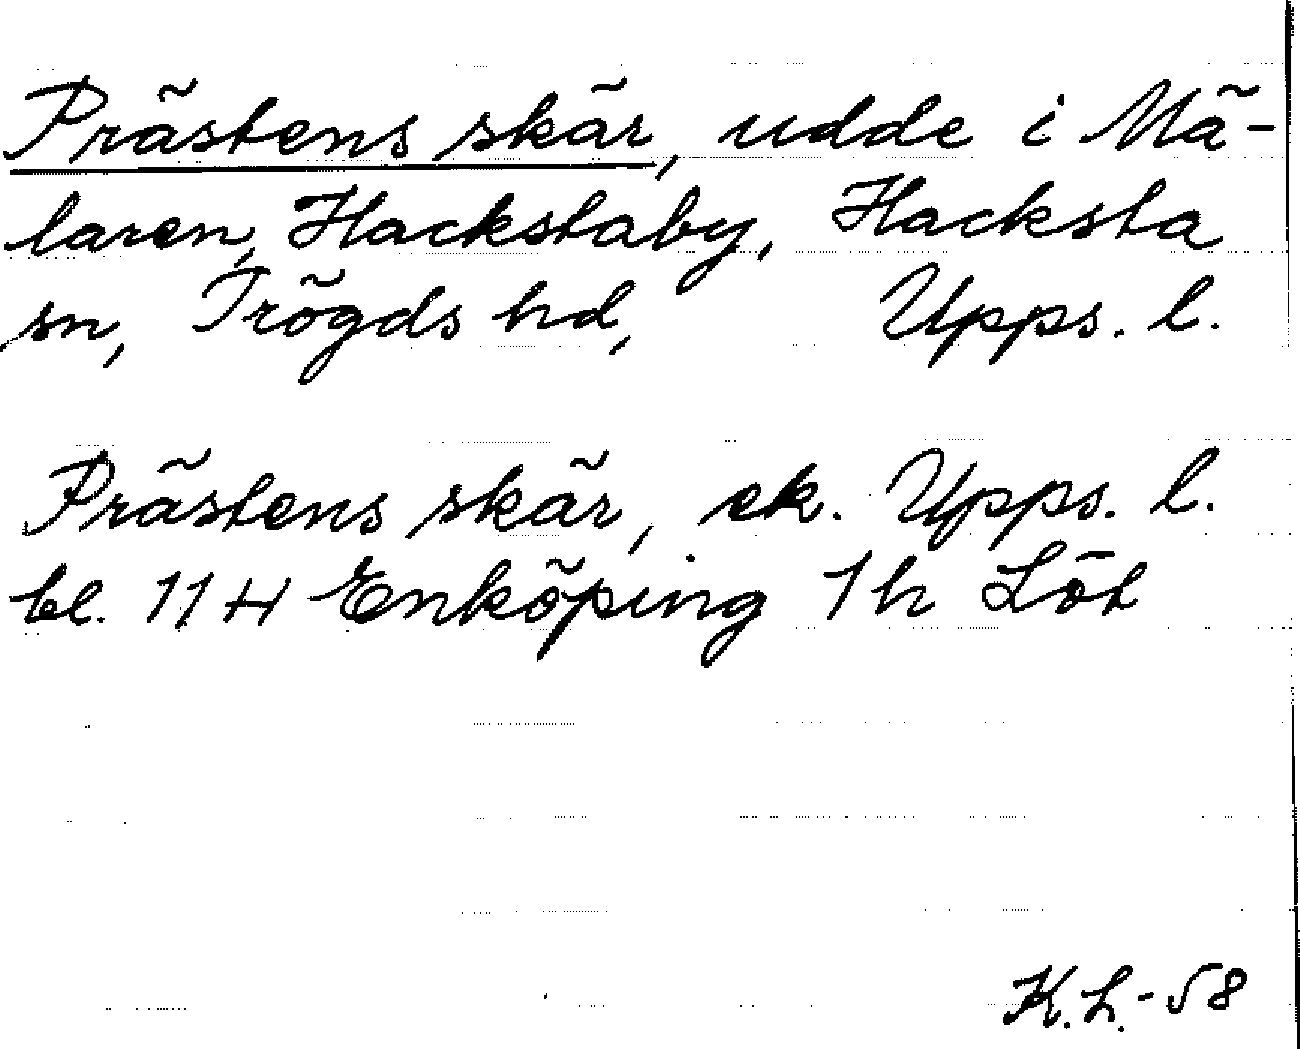 Prästens skär, udde i Mä-
laren, Hackstaby, Hacksta
sn, Trögds hd, Upps. l.
Prästens skär, ek. Upps. l.
bl. 11 H Enköping 1 h Löt
K.L.-58